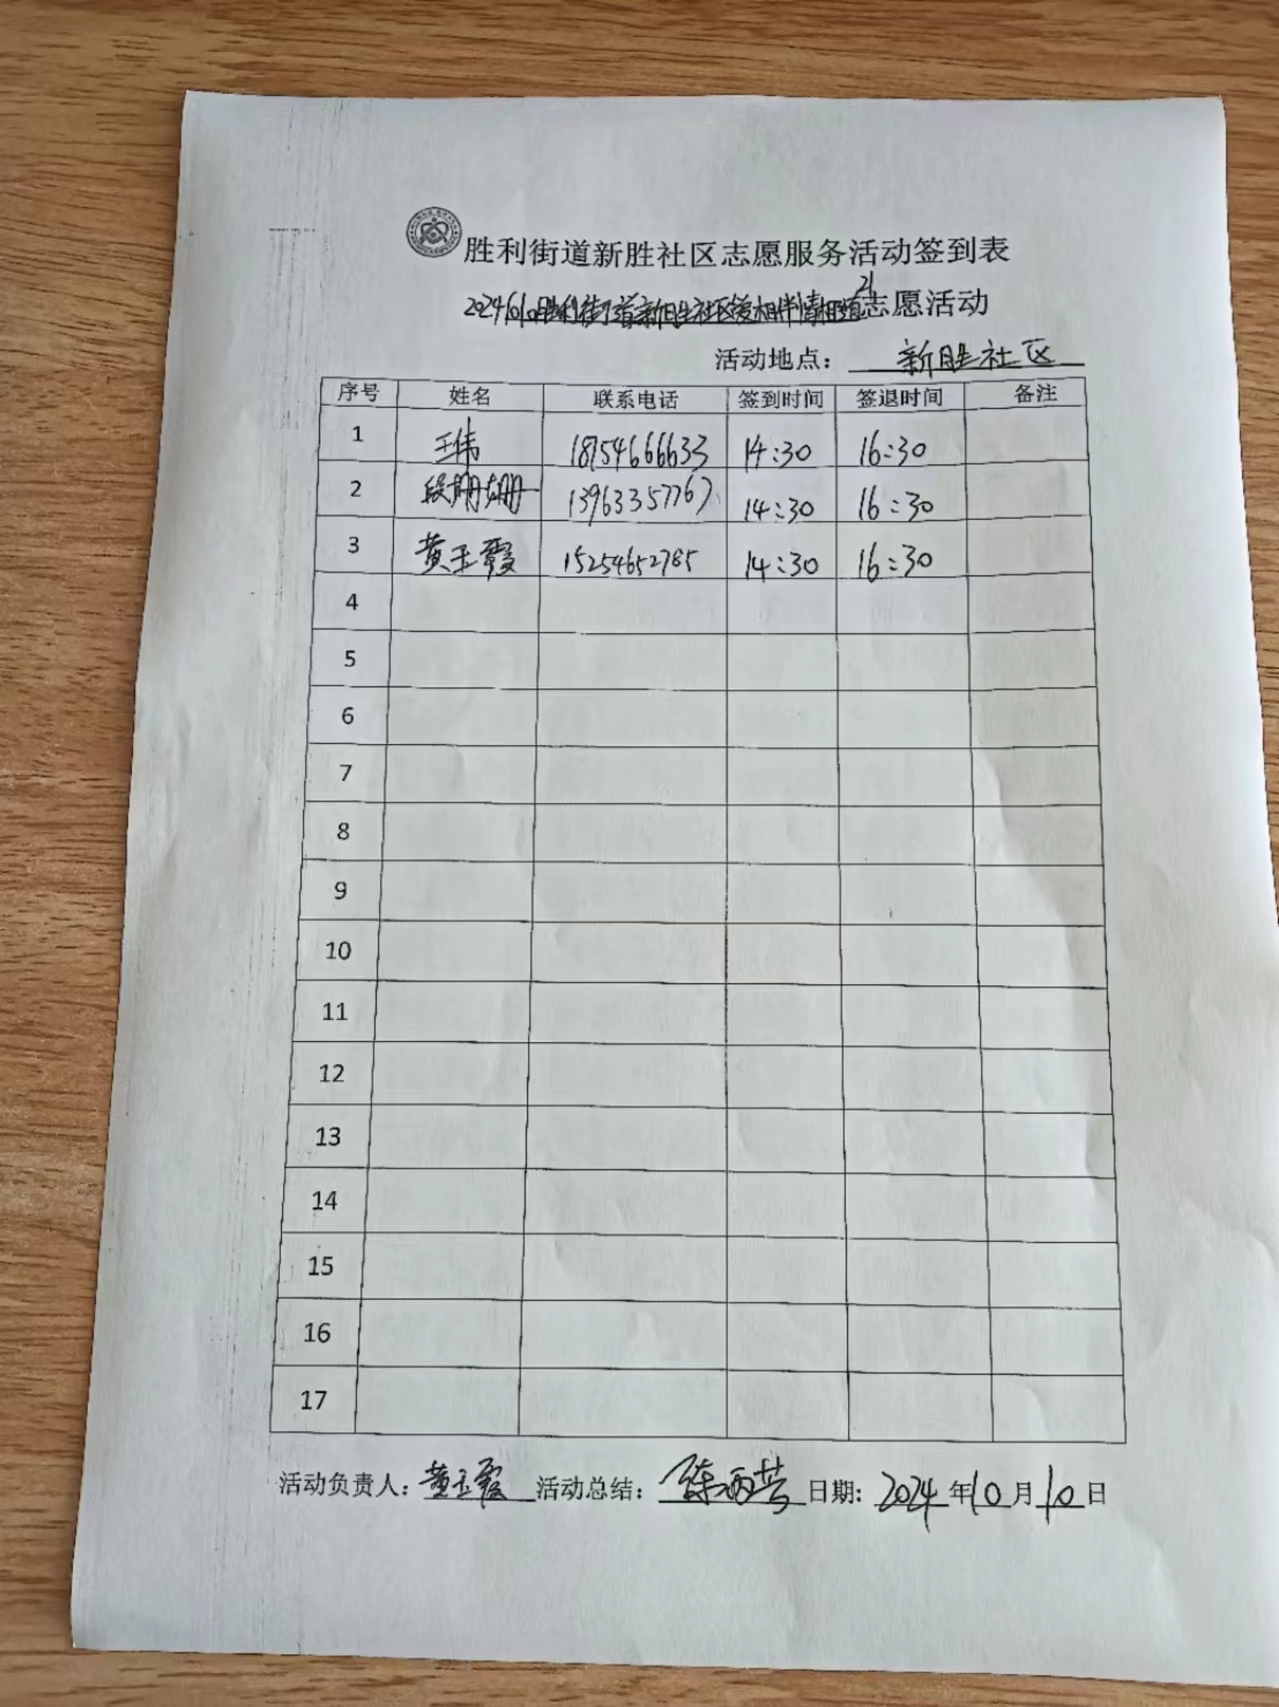 胜利街道新胜社区志愿服务活动签到表
20241010胜利街道新胜社区爱相伴情相随21志愿活动
活动地点：新胜社区
序号 姓名 联系电话 签到时间 签退时间 备注
1 王伟 18754666633 14:30 16:30
2 段珊珊 13963357767 14:30 16:30
3 黄玉霞 15254652785 14:30 16:30
4
5
6
7
8
9
10
11
12
13
14
15
16
17
活动负责人：黄玉霞 活动总结：陈丽芸 日期：2024年10月10日